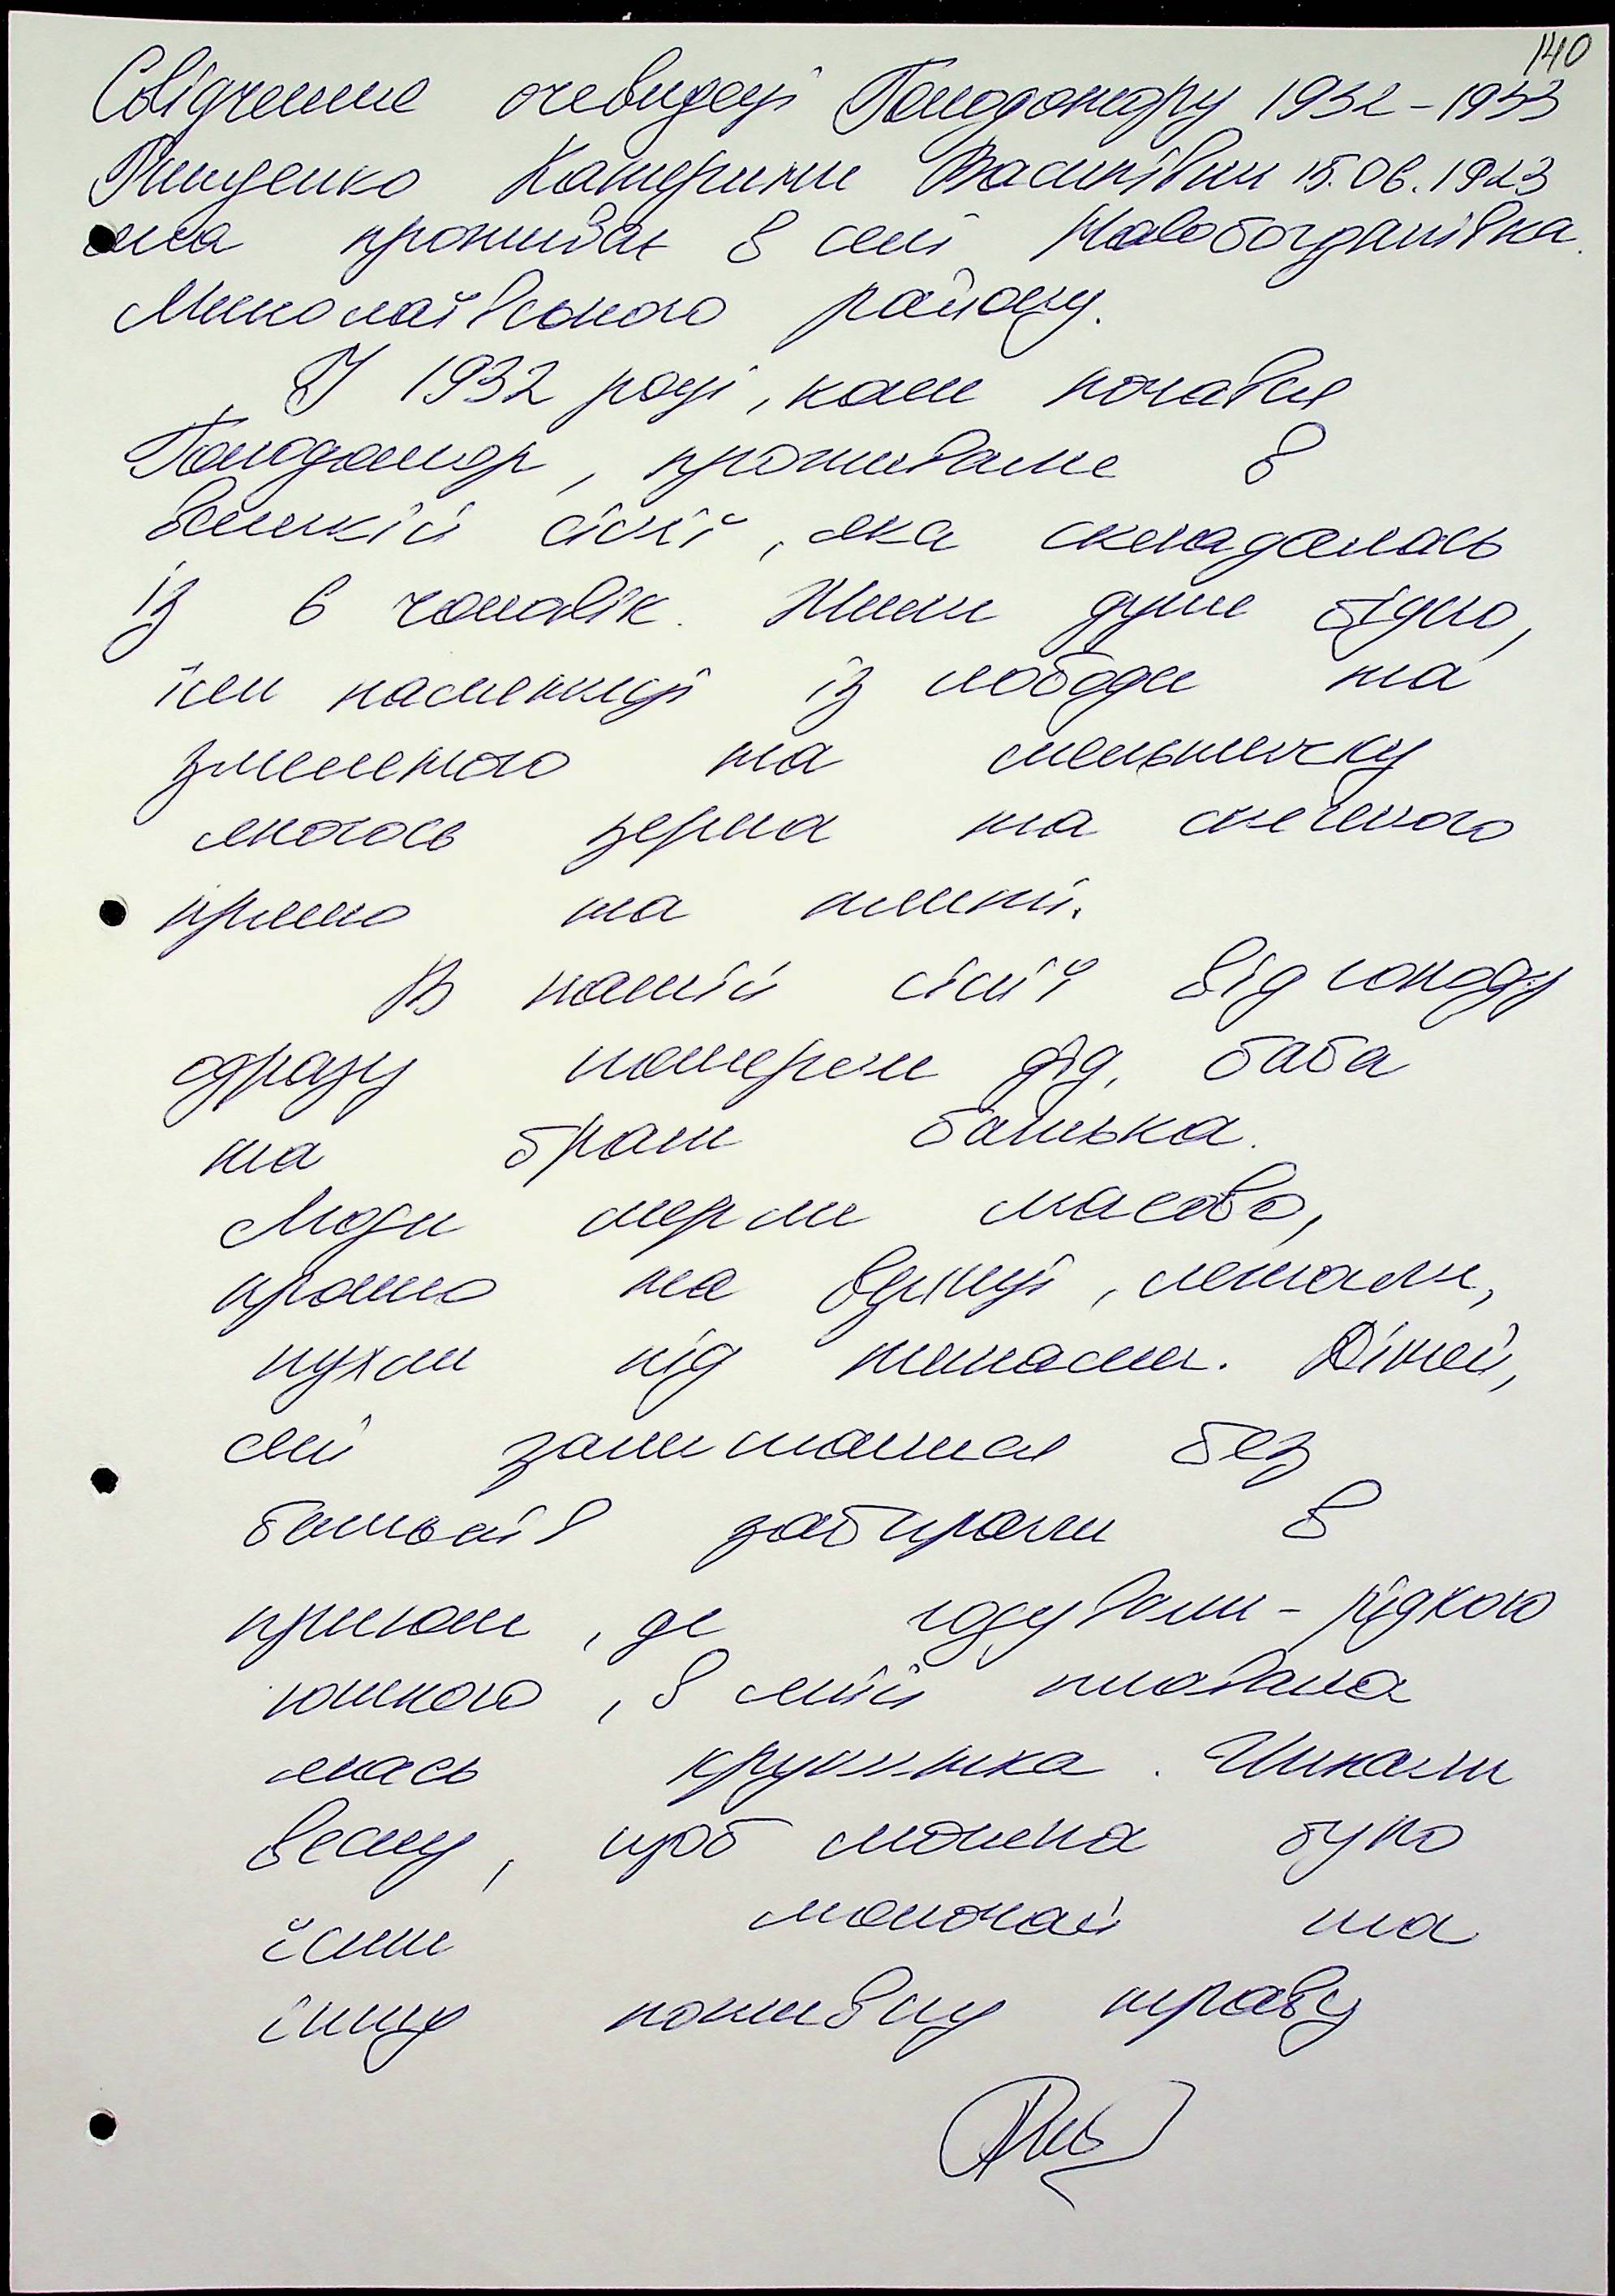 140
Свідчення очевидці Голодомору 1932-1933
Тищенко Катерини Василівни 15.06.1923
яка проживає в селі Новобогданівка.
Миколаївського району.
У 1932 році, коли почався
Голодомор, проживали в
великій сім'ї, яка складалась
із 6 чоловік. Жили дуже бідно,
їли паляниці із лободи та
змеленого та
якогось зерна та спеченого
прямо на плиті.
В нашій сім'ї від голоду
одразу померли дід, баба
та брат батька.
Люди мерли масово,
прямо на вулиці, лежали,
пухли під тинами. Дітей,
які залишались без
батьків забирали в
приют, де годували - рідкою
юшкою, в якій плавала
якась крупинка. Чекали
весну, щоб можна було
їсти молочай та
іншу поживну траву